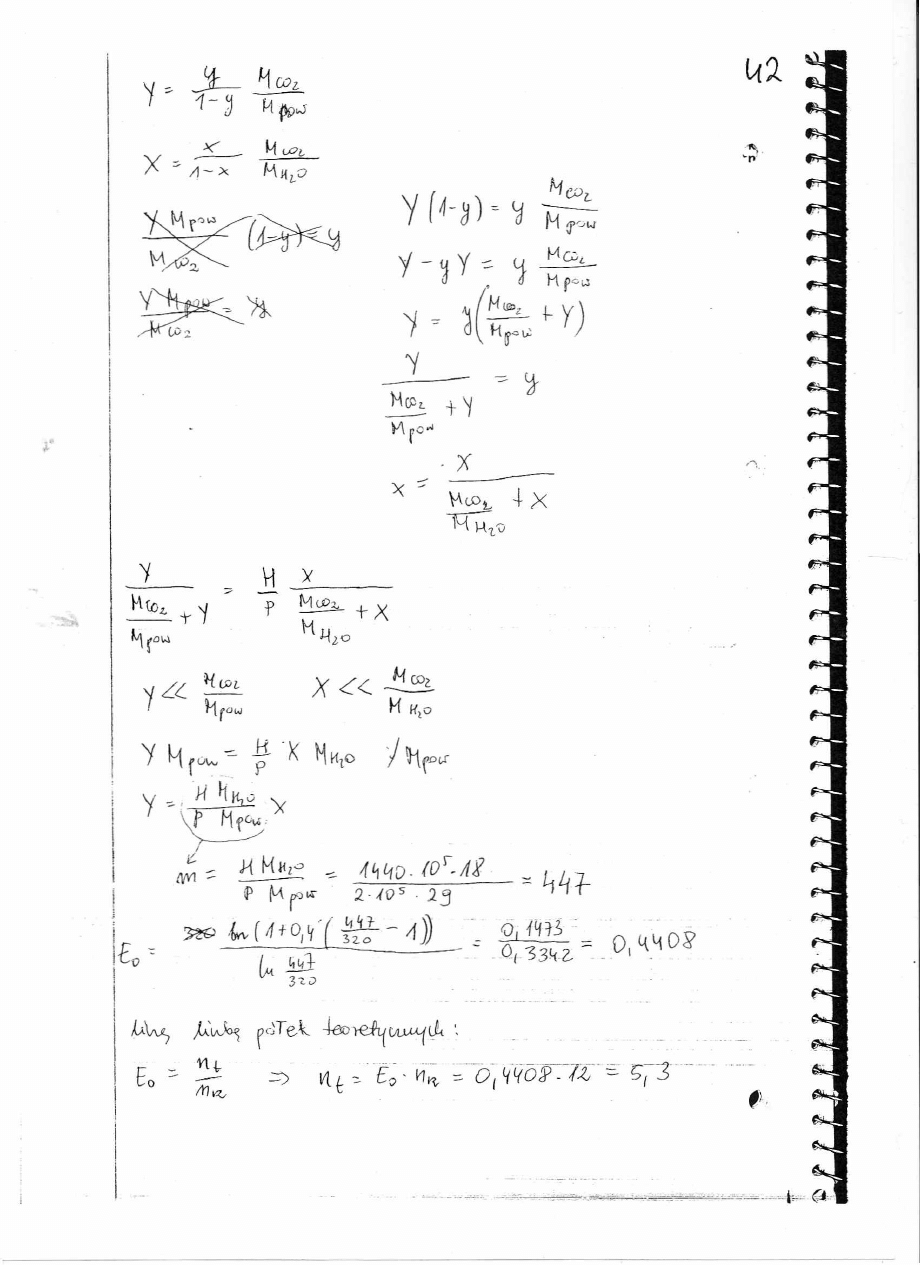 42
Y = y/(1-y) M_CO2/M_pow
X = x/(1-x) M_CO2/M_H2O
Y M_pow/M_CO2 (1-y) = y
Y M_pow/M_CO2 =
Y (1-y) = y M_CO2/M_pow
Y - yY = y M_CO2/M_pow
Y = y(M_CO2/M_pow + Y)
Y/(M_CO2/M_pow + Y) = y
x = X/(M_CO2/M_H2O + X)
Y/(M_CO2/M_pow + Y) = H/P X/(M_CO2/M_H2O + X)
Y << M_CO2/M_pow X << M_CO2/M_H2O
Y M_pow = H/P X M_H2O /: M_pow
Y = H M_H2O/P M_pow X
m = H M_H2O/P M_pow = 1440·10^5·18/2·10^5·29 = 447
E_o = ln(1+0,4(447/320 - 1))/ln 447/320 = 0,1473/0,3342 = 0,4408
liczę liczbę półek teoretycznych:
E_o = n_t/n_rz => n_t = E_o · n_rz = 0,4408·12 = 5,3